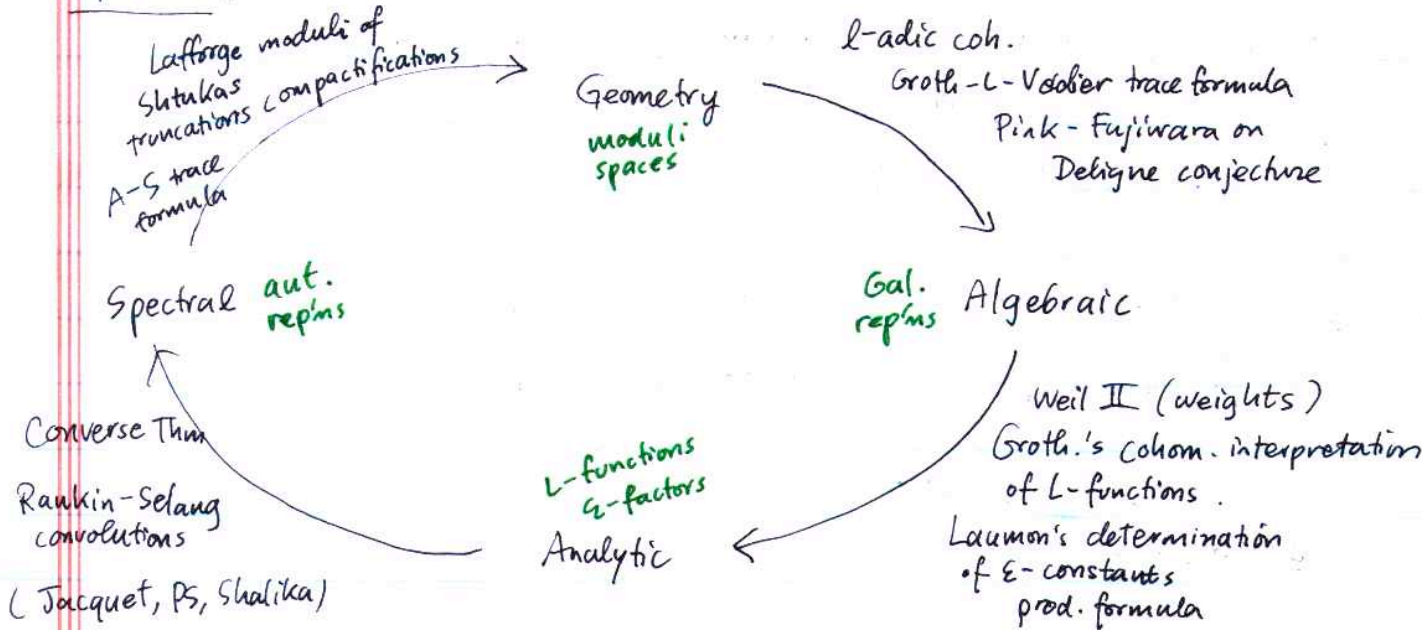 Lafforge moduli of
Shtukas
truncations compactifications
A-S trace
formula
Geometry
moduli
spaces
l-adic coh.
Groth-L-Verdier trace formula
Pink-Fujiwara on
Deligne conjecture
Spectral aut.
rep'ns
Gal.
rep'ns Algebraic
Weil II (weights)
Groth.'s cohom. interpretation
of L-functions.
Laumon's determination
of ε-constants
prod. formula
L-functions
ε-factors
Analytic
Converse Thm
Rankin-Selang
convolutions
(Jacquet, PS, Shalika)